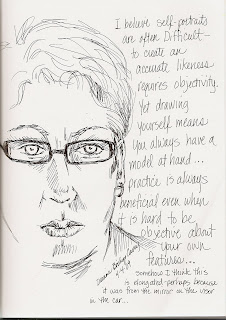 I believe self-portraits
are often Difficult-
to create an
accurate likeness
requires objectivity.
Yet drawing
yourself means
you always have a
model at hand...
practice is always
beneficial even when
it is hard to be
objective about
your own
features...
somehow I think this
is elongated-perhaps because
it was from the mirror in the visor
in the car...